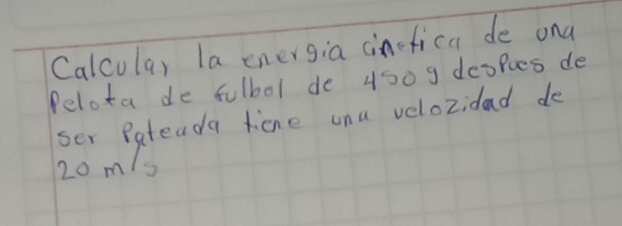 Calcular la energia cinetica de una
Pelota de fulbol de 450g despues de
ser Pateada tiene una velozidad de
20 m/s